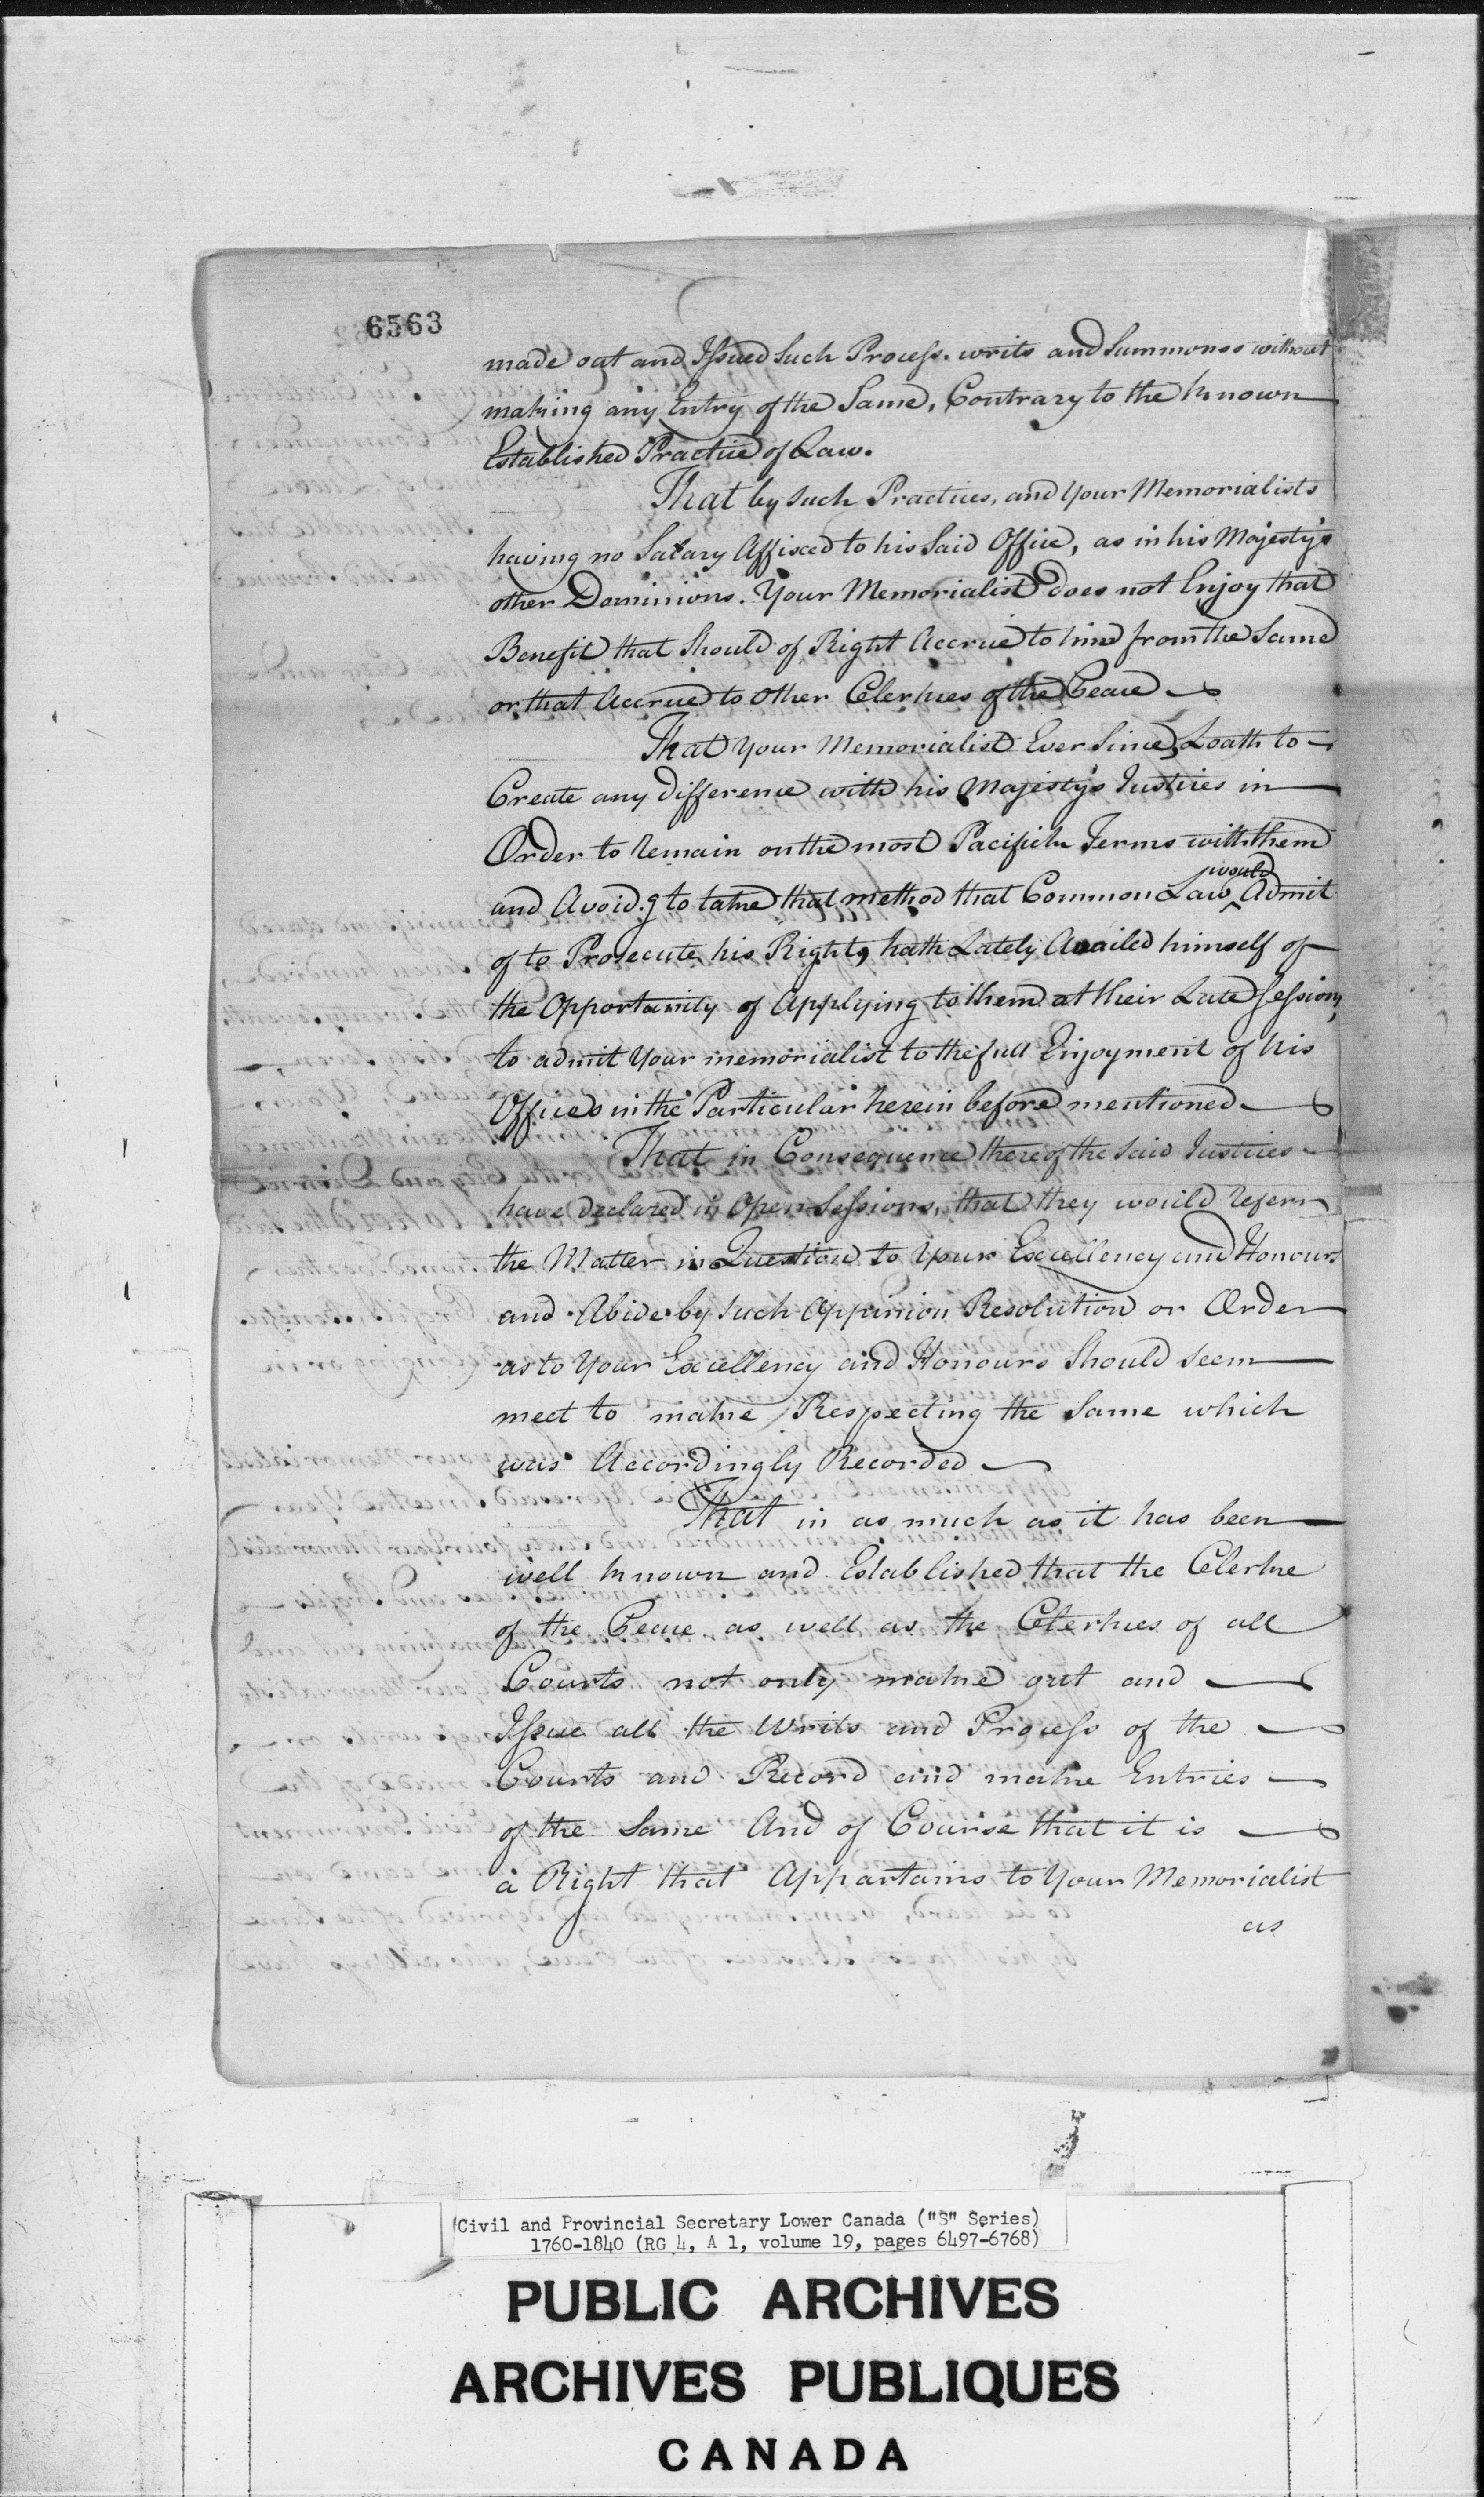 6563
made out and Issued Such Process. writs and Summonses without
making any Entry of the Same, Contrary to the known
Established Practice of Law.
That by such Practices, and Your Memorialists
having no Salary Affixed to his Said Office, as in his Majesty's
other Dominions. Your Memorialist does not Enjoy that
Benefit that Should of Right Accrue to him from the Same
or that Accrue to Other Clerkes of the Peace
That Your Memorialist Ever Since, Loath to
Create any difference with his Majesty's Justices in
Order to Remain on the most Pacifick Terms with them
and Avoid.g to take that method that Common Law would Admit
of to Prosecute his Rights hath Lately Availed himself of
the Opportunity of Applying to them at their Late Session,
to admit Your memorialist to the full Enjoyment of his
Offices in the Particular herein before mentioned
That in Consequence thereof the Said Justices
have declared in Open Sessions, that they would Refer
the Matter in Question to Your Excellency and Honours
and Abide by such Oppinion Resolution or Order
as to Your Excellency and Honours Should seem
meet to make Respecting the Same which
was Accordingly Recorded
That in as much as it has been
well known and Established that the Clerke
of the Peace as well as the Clerkes of all
Courts not only make out and
Issue all the Writs and Process of the
Courts and Record and make Entries
of the Same And of Course that it is
a Right that Appartains to Your Memorialist
as
Civil and Provincial Secretary Lower Canada ("S" Series)
1760-1840 (RG 4, A 1, volume 19, pages 6497-6768)
PUBLIC ARCHIVES
ARCHIVES PUBLIQUES
CANADA